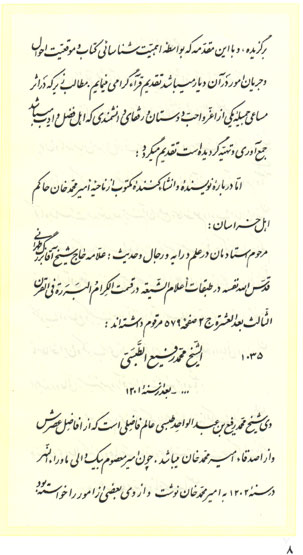 برگزیده، و با این مقدمه که بواسطهٔ اهمیت شناسائی کتاب و موقعیت احوال
و جریان امور در آن دیار میباشد تقدیم قراء گرامی مینمایم. مطالب زیر که در اثر
مساعی جمیلهٔ یکی از اعز و احب دوستان دانشمندی که اهل فضل و ادب میباشد
جمع‌آوری و تهیه گردیده است تقدیم میگردد:
اما دربارهٔ نویسنده و انشاء کنندهٔ مکتوب از ناحیهٔ امیر محمد خان حاکم
اهل خراسان:
مرحوم استادمان در علم درایه و رجال و حدیث: علامه حاج شیخ آقا بزرگ طهرانی
قدس الله نفسه در طبقات أعلام الشیعه در قسمت الکرام البررة فی القرن
الثالث بعد العشرة ج ۲ صفحه ۵۷۹ مرقوم داشته‌اند:
۱۰۳۵ الشیخ محمد رفیع الطبسی
... - بعد از سنه ۱۲۰۱
وی شیخ محمد رفیع بن عبد الواحد طبسی عالم فاضلی است که از أفاضل عصرش
و از اصدقاء امیر محمد خان میباشد. چون امیر معصوم بیک والی ماوراء النهر
در سنهٔ ۱۲۰۲ به امیر محمد خان نوشت و از وی بعضی از امور را خواسته بود
۸